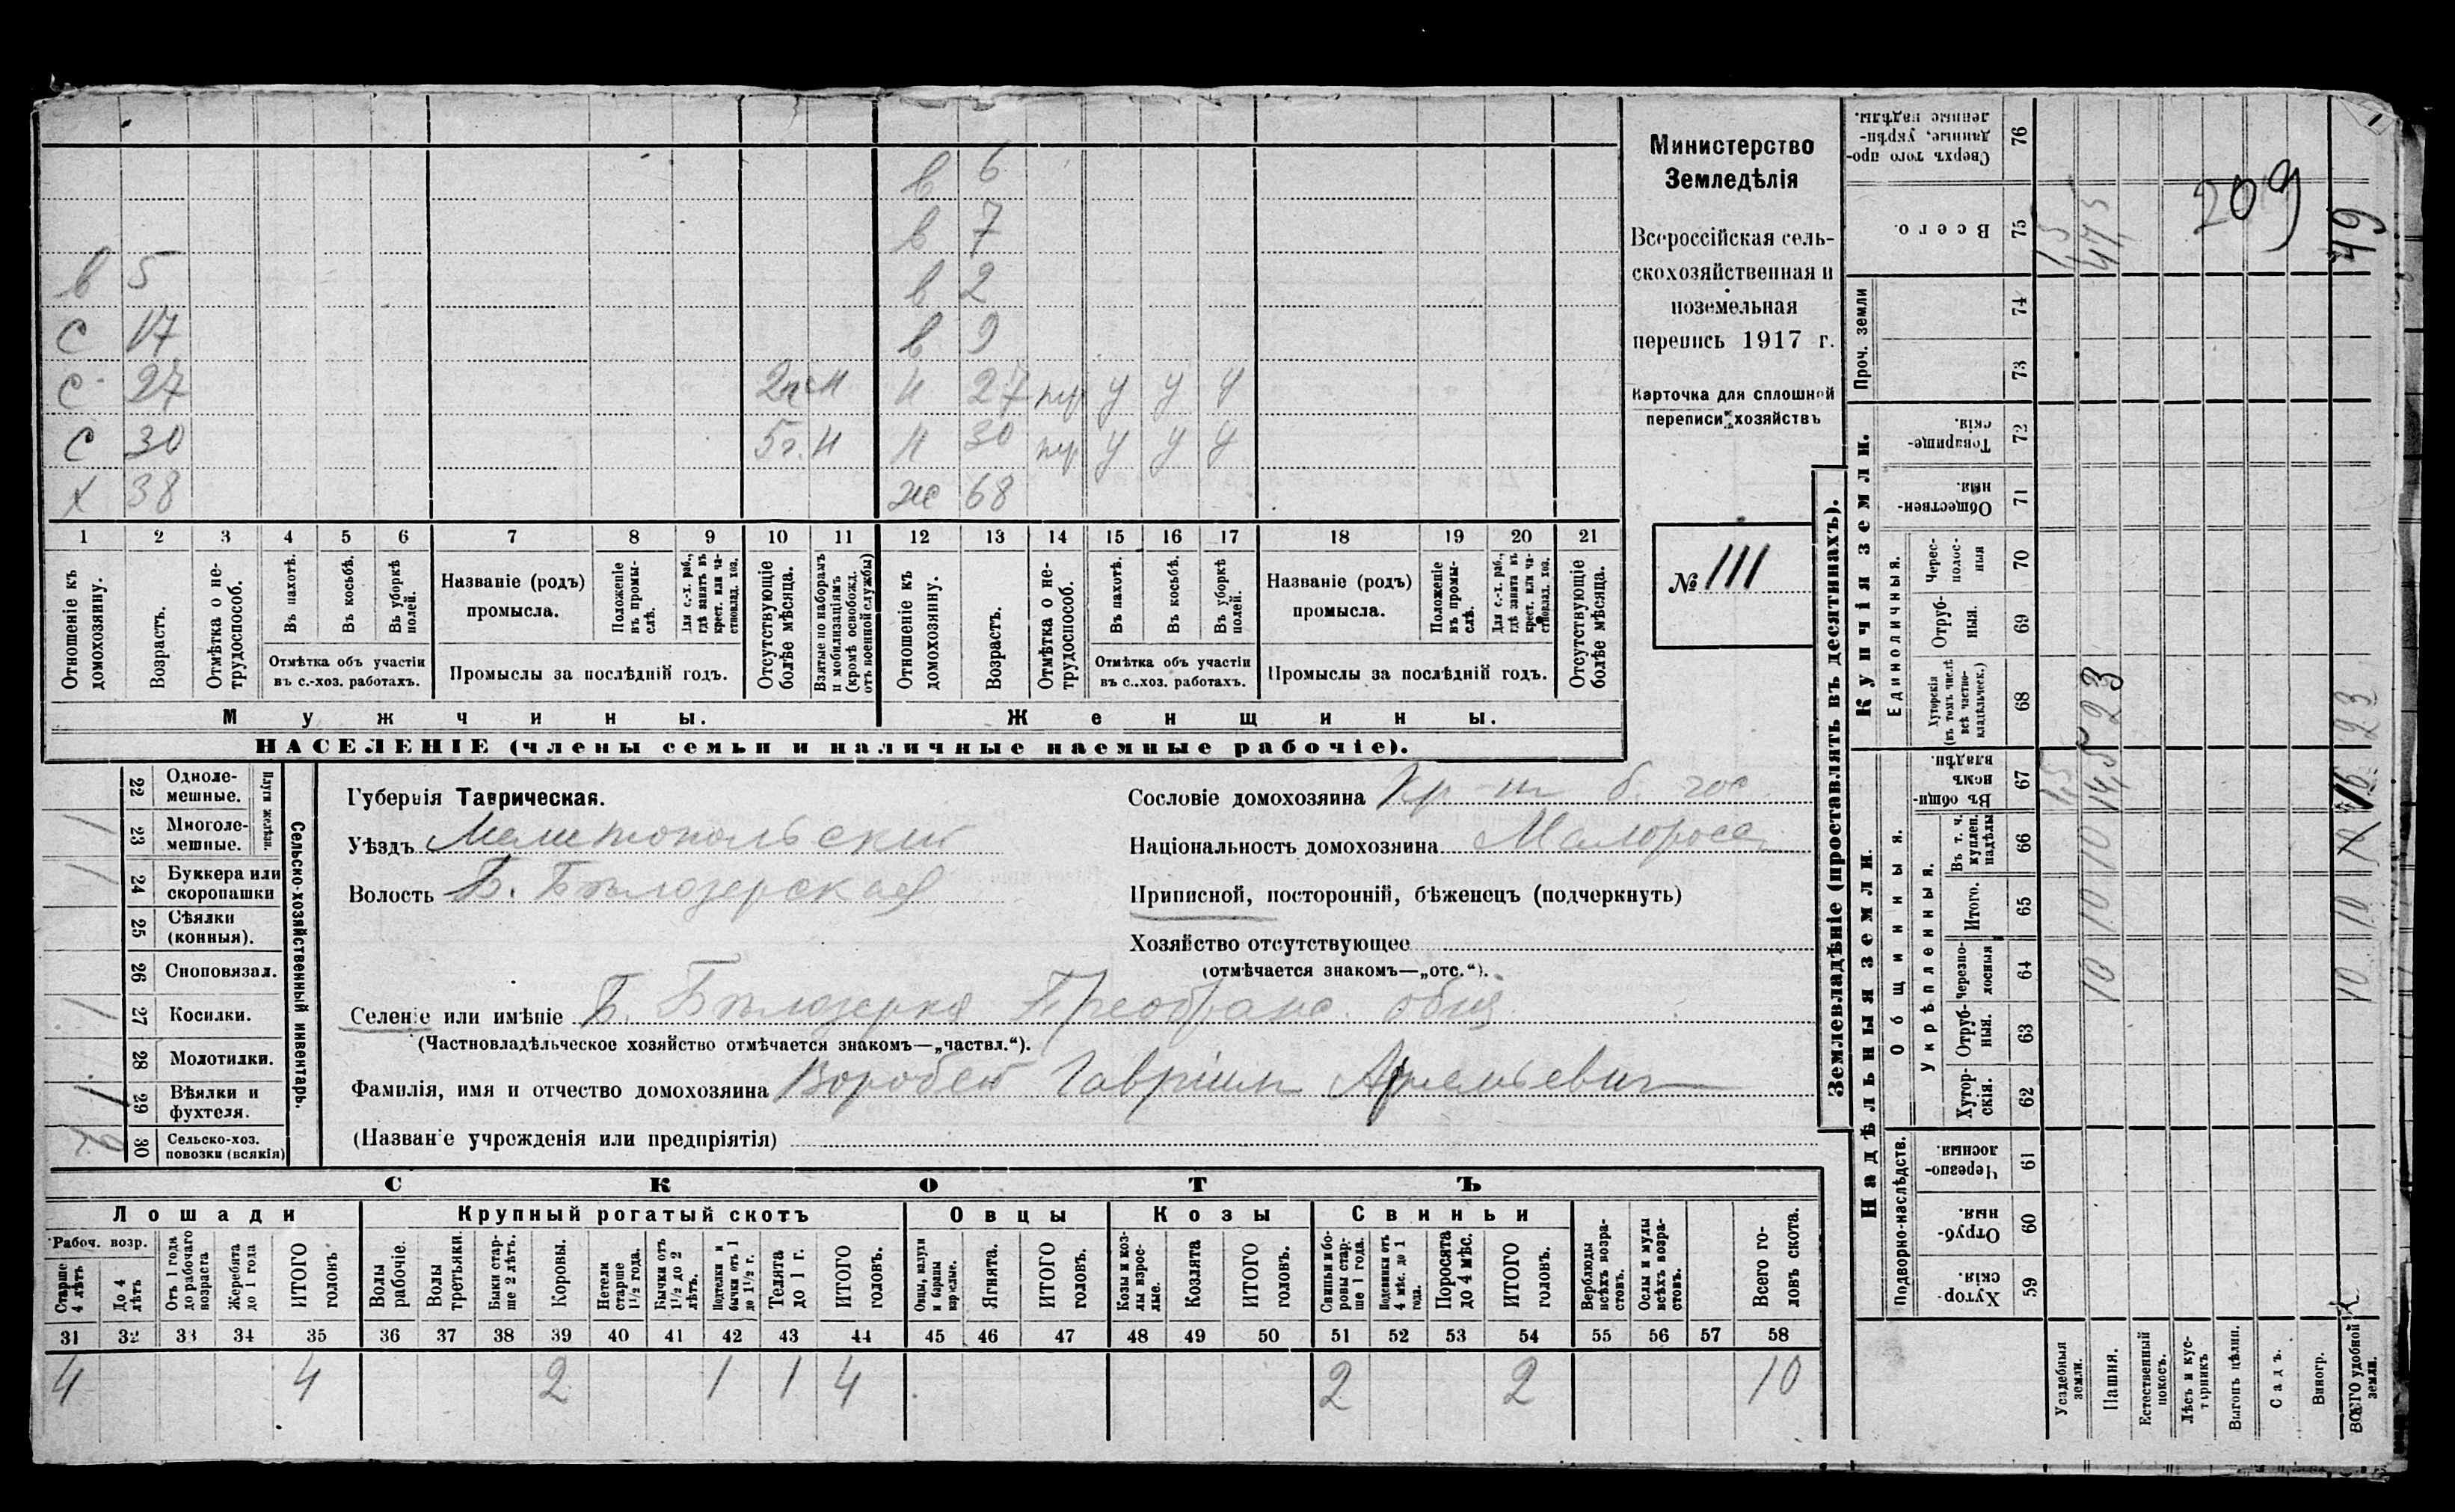 в 6
в 7
в 5 в 2
с 17 в 9
с 27 2 м н 27 нр у у у
с 30 5 г. н 30 нр у у у
х 38 ж 68
1 2 3 4 5 6 7 8 9 10 11 12 13 14 15 16 17 18 19 20 21
Отношеніе къ домохозяину.
Возрастъ.
Отмѣтка о нетрудоспособ.
Въ пахотѣ.
Въ косьбѣ.
Въ уборкѣ полей.
Отмѣтка объ участіи
въ с.-хоз. работахъ.
Названіе (родъ)
промысла.
Положеніе въ промыслѣ.
Для с.-х. раб., гдѣ занятъ въ крест. или частновлад. хоз.
Промыслы за послѣдній годъ.
Отсутствующіе болѣе мѣсяца.
Взятые по наборамъ и мобилизаціямъ (кромѣ освобожд. отъ военной службы)
Отношеніе къ домохозяину.
Возрастъ.
Отмѣтка о нетрудоспособ.
Въ пахотѣ.
Въ косьбѣ.
Въ уборкѣ полей.
Отмѣтка объ участіи
въ с.-хоз. работахъ.
Названіе (родъ)
промысла.
Положеніе въ промыслѣ.
Для с.-х. раб., гдѣ занята въ крест. или частновлад. хоз.
Промыслы за послѣдній годъ.
Отсутствующіе болѣе мѣсяца.
Мужчины.
Женщины.
НАСЕЛЕНІЕ (члены семьи и наличные наемные рабочіе).
Министерство
Земледѣлія
Всероссійская сель-
скохозяйственная и
поземельная
перепись 1917 г.
Карточка для сплошной
переписи хозяйствъ
№ 111
Сельско-хозяйственный инвентарь.
Плуги желѣзн.
22 Одноле-
мешные.
23 Многоле-
мешные. 1
24 Буккера или
скоропашки 1
25 Сѣялки
(конныя).
26 Сноповязал.
27 Косилки. 1
28 Молотилки.
29 Вѣялки и
фухтеля. 1
30 Сельско-хоз.
повозки (всякія)
Губернія Таврическая.
Уѣздъ Мелитопольский
Волость Б. Бѣлозерская
Сословіе домохозяина Кр-нъ б. гос
Національность домохозяина Малоросс
Приписной, посторонній, бѣженецъ (подчеркнуть)
Хозяйство отсутствующее
(отмѣчается знакомъ—„отс.“).
Селеніе или имѣніе Б. Бѣлозерка Преображ. общ.
(Частновладѣльческое хозяйство отмѣчается знакомъ—„частвл.“).
Фамилія, имя и отчество домохозяина Воробей Гавріилъ Артемьевич
(Названіе учрежденія или предпріятія)
СКОТЪ
Лошади
Крупный рогатый скотъ
Овцы
Козы
Свиньи
Рабоч. возр.
Старше 4 лѣтъ
До 4 лѣтъ
Отъ 1 года до рабочаго возраста
Жеребята до 1 года
ИТОГО головъ
Волы рабочіе.
Волы третьяки.
Быки старше 2 лѣтъ.
Коровы.
Нетели старше 1½ года.
Бычки отъ 1½ до 2 лѣтъ.
Подтелки и бычки отъ 1 до 1½ г.
Телята до 1 г.
ИТОГО головъ.
Овцы, валухи и бараны взрослые.
Ягнята.
ИТОГО головъ.
Козы и козлы взрослые.
Козлята
ИТОГО головъ.
Свиньи и боровы старше 1 года.
Подсвинки отъ 4 мѣс. до 1 года.
Поросята до 4 мѣс.
ИТОГО головъ.
Верблюды всѣхъ возрастовъ.
Ослы и мулы всѣхъ возрастовъ.
Всего головъ скота.
31 32 33 34 35 36 37 38 39 40 41 42 43 44 45 46 47 48 49 50 51 52 53 54 55 56 57 58
4 4 2 1 1 4 2 2 10
Землевладѣніе (проставлять въ десятинахъ).
Надѣльныя земли.
Купчія земли.
Проч. земли
Подворно-наслѣдств.
Общинныя.
Укрѣпленныя.
Единоличныя.
Хуторскія. 59
Отрубныя. 60
Черезполосныя. 61
Хуторскія. 62
Отрубныя. 63
Черезполосныя 64
Итого. 65
Въ т. ч. куплен. надѣлы 66
Въ общинномъ владѣн. 67
Хуторскія (въ томъ числѣ всѣ частновладѣльческ.) 68
Отрубныя. 69
Чрезполосныя 70
Общественныя. 71
Товарищескія. 72
73
74
Всего. 75
Сверхъ того проданные, укрѣпленные надѣлы. 76
Усадебныя земли. 1,5 1,5
Пашня. 10 10 10 14,5 23 47,5
Естественный покосъ.
Лѣсъ и кустарникъ
Выгонъ цѣлин.
Садъ.
Виногр.
ВСЕГО удобной земли. 10 10 10 16 23 49
209
1